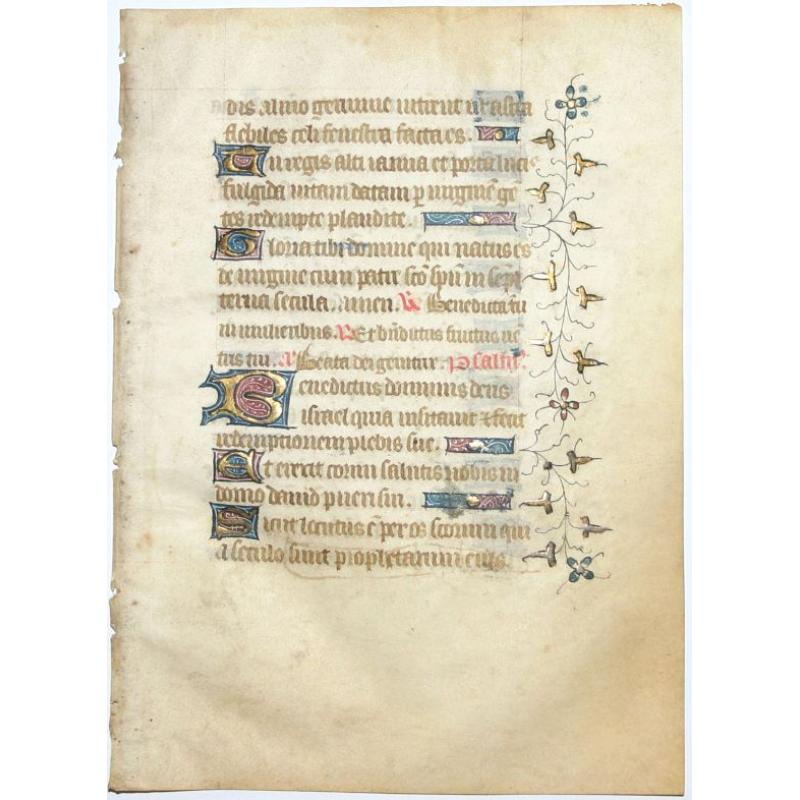 dis almo germine intrent ut astra
flebiles celi fenestra facta es.
Tu regis alti ianua et porta lucis
fulgida uitam datam p uirginē gē
tes redempte plaudite.
Gloria tibi domine qui natus es
de uirgine cum patre scō spū in sempi
terna secula. amen. V Benedicta tu
in mulieribus. R Et bn̄dictus fructus uē
tris tui. a Beata dei genitrix. Psalm9.
Benedictus dominus deus
israel quia uisitauit et fecit
redemptionem plebis sue.
Et erexit cornu salutis nobis in
domo dauid pueri sui.
Sicut locutus ē per os sc̄orum qui
a seculo sunt prophetarum eius.